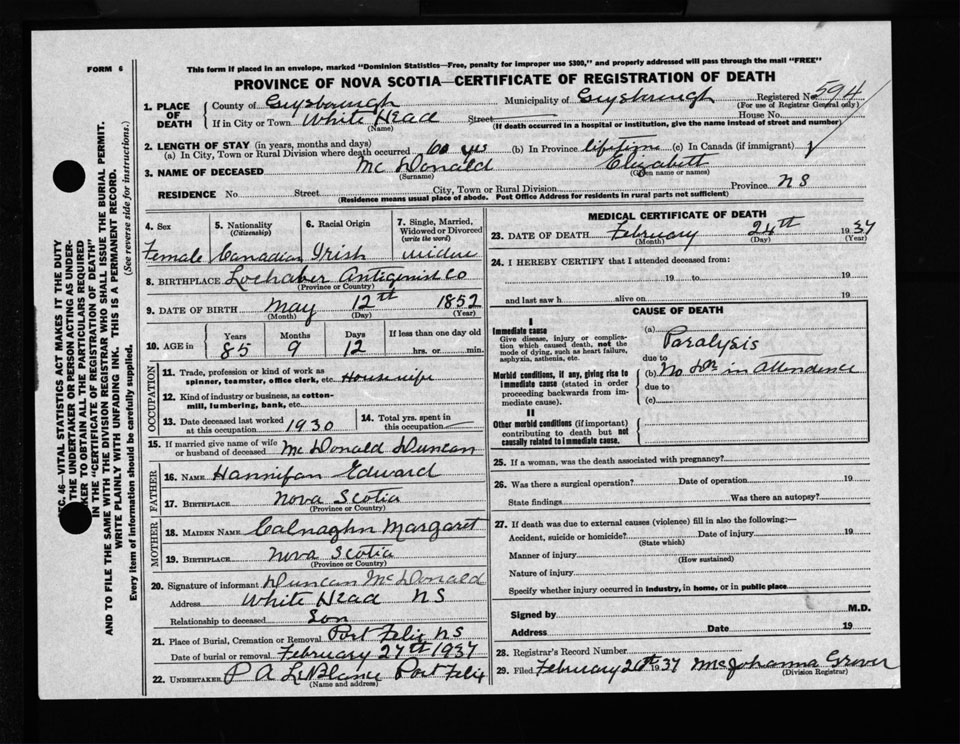 FORM 6
This form if placed in an envelope, marked "Dominion Statistics—Free, penalty for improper use $300," and properly addressed will pass through the mail "FREE"
PROVINCE OF NOVA SCOTIA—CERTIFICATE OF REGISTRATION OF DEATH
1. PLACE OF DEATH
County of Guysborough Municipality of Guysborough Registered No. 594
(For use of Registrar General only)
If in City or Town White Head Street House No.
(Name) (If death occurred in a hospital or institution, give the name instead of street and number)
2. LENGTH OF STAY (in years, months and days)
(a) In City, Town or Rural Division where death occurred 60 yrs (b) In Province lifetime (c) In Canada (if immigrant)
3. NAME OF DECEASED Mc Donald Elizabett
(Surname) (Given name or names)
RESIDENCE No. Street City, Town or Rural Division Province N S
(Residence means usual place of abode. Post Office Address for residents in rural parts not sufficient)
4. Sex
Female
5. Nationality
(Citizenship)
Canadian
6. Racial Origin
Irish
7. Single, Married, Widowed or Divorced
(write the word)
widow
8. BIRTHPLACE Lochaber Antigonish Co
(Province or Country)
9. DATE OF BIRTH May 12th 1852
(Month) (Day) (Year)
10. AGE in
Years Months Days If less than one day old
85 9 12 hrs. or min.
OCCUPATION
11. Trade, profession or kind of work as
spinner, teamster, office clerk, etc. Housewife
12. Kind of industry or business, as cotton-
mill, lumbering, bank, etc.
13. Date deceased last worked
at this occupation 1930
14. Total yrs. spent in
this occupation
15. If married give name of wife
or husband of deceased Mc Donald Duncan
FATHER
16. NAME Hannifan Edward
17. BIRTHPLACE Nova Scotia
(Province or Country)
MOTHER
18. MAIDEN NAME Calnaghn Margaret
19. BIRTHPLACE Nova Scotia
(Province or Country)
20. Signature of informant Duncan McDonald
Address White Head N S
Relationship to deceased Son
21. Place of Burial, Cremation or Removal Port Felix N S
Date of burial or removal February 27th 1937
22. UNDERTAKER P A LeBlance Port Felix
(Name and address)
MEDICAL CERTIFICATE OF DEATH
23. DATE OF DEATH February 24th 1937
(Month) (Day) (Year)
24. I HEREBY CERTIFY that I attended deceased from:
19 to 19
and last saw h alive on 19
CAUSE OF DEATH
I
Immediate cause
Give disease, injury or complica-
tion which caused death, not the
mode of dying, such as heart failure,
asphyxia, asthenia, etc.
(a) Paralysis
due to
Morbid conditions, if any, giving rise to
immediate cause (stated in order
proceeding backwards from im-
mediate cause).
(b) No Dr in attendence
due to
(c)
II
Other morbid conditions (if important)
contributing to death but not
causally related to immediate cause.
25. If a woman, was the death associated with pregnancy?
26. Was there a surgical operation? Date of operation 19
State findings Was there an autopsy?
27. If death was due to external causes (violence) fill in also the following:—
Accident, suicide or homicide? Date of injury 19
(State which)
Manner of injury
(How sustained)
Nature of injury
Specify whether injury occurred in industry, in home, or in public place
Signed by M.D.
Address Date 19
28. Registrar's Record Number
29. Filed February 26th 1937 Mc Johanna Grover
(Division Registrar)
EC. 46—VITAL STATISTICS ACT MAKES IT THE DUTY
THE UNDERTAKER OR PERSON ACTING AS UNDER-
AKER TO OBTAIN ALL THE PARTICULARS REQUIRED
IN THE "CERTIFICATE OF REGISTRATION OF DEATH"
AND TO FILE THE SAME WITH THE DIVISION REGISTRAR WHO SHALL ISSUE THE BURIAL PERMIT.
WRITE PLAINLY WITH UNFADING INK. THIS IS A PERMANENT RECORD.
Every item of information should be carefully supplied. (See reverse side for instructions.)